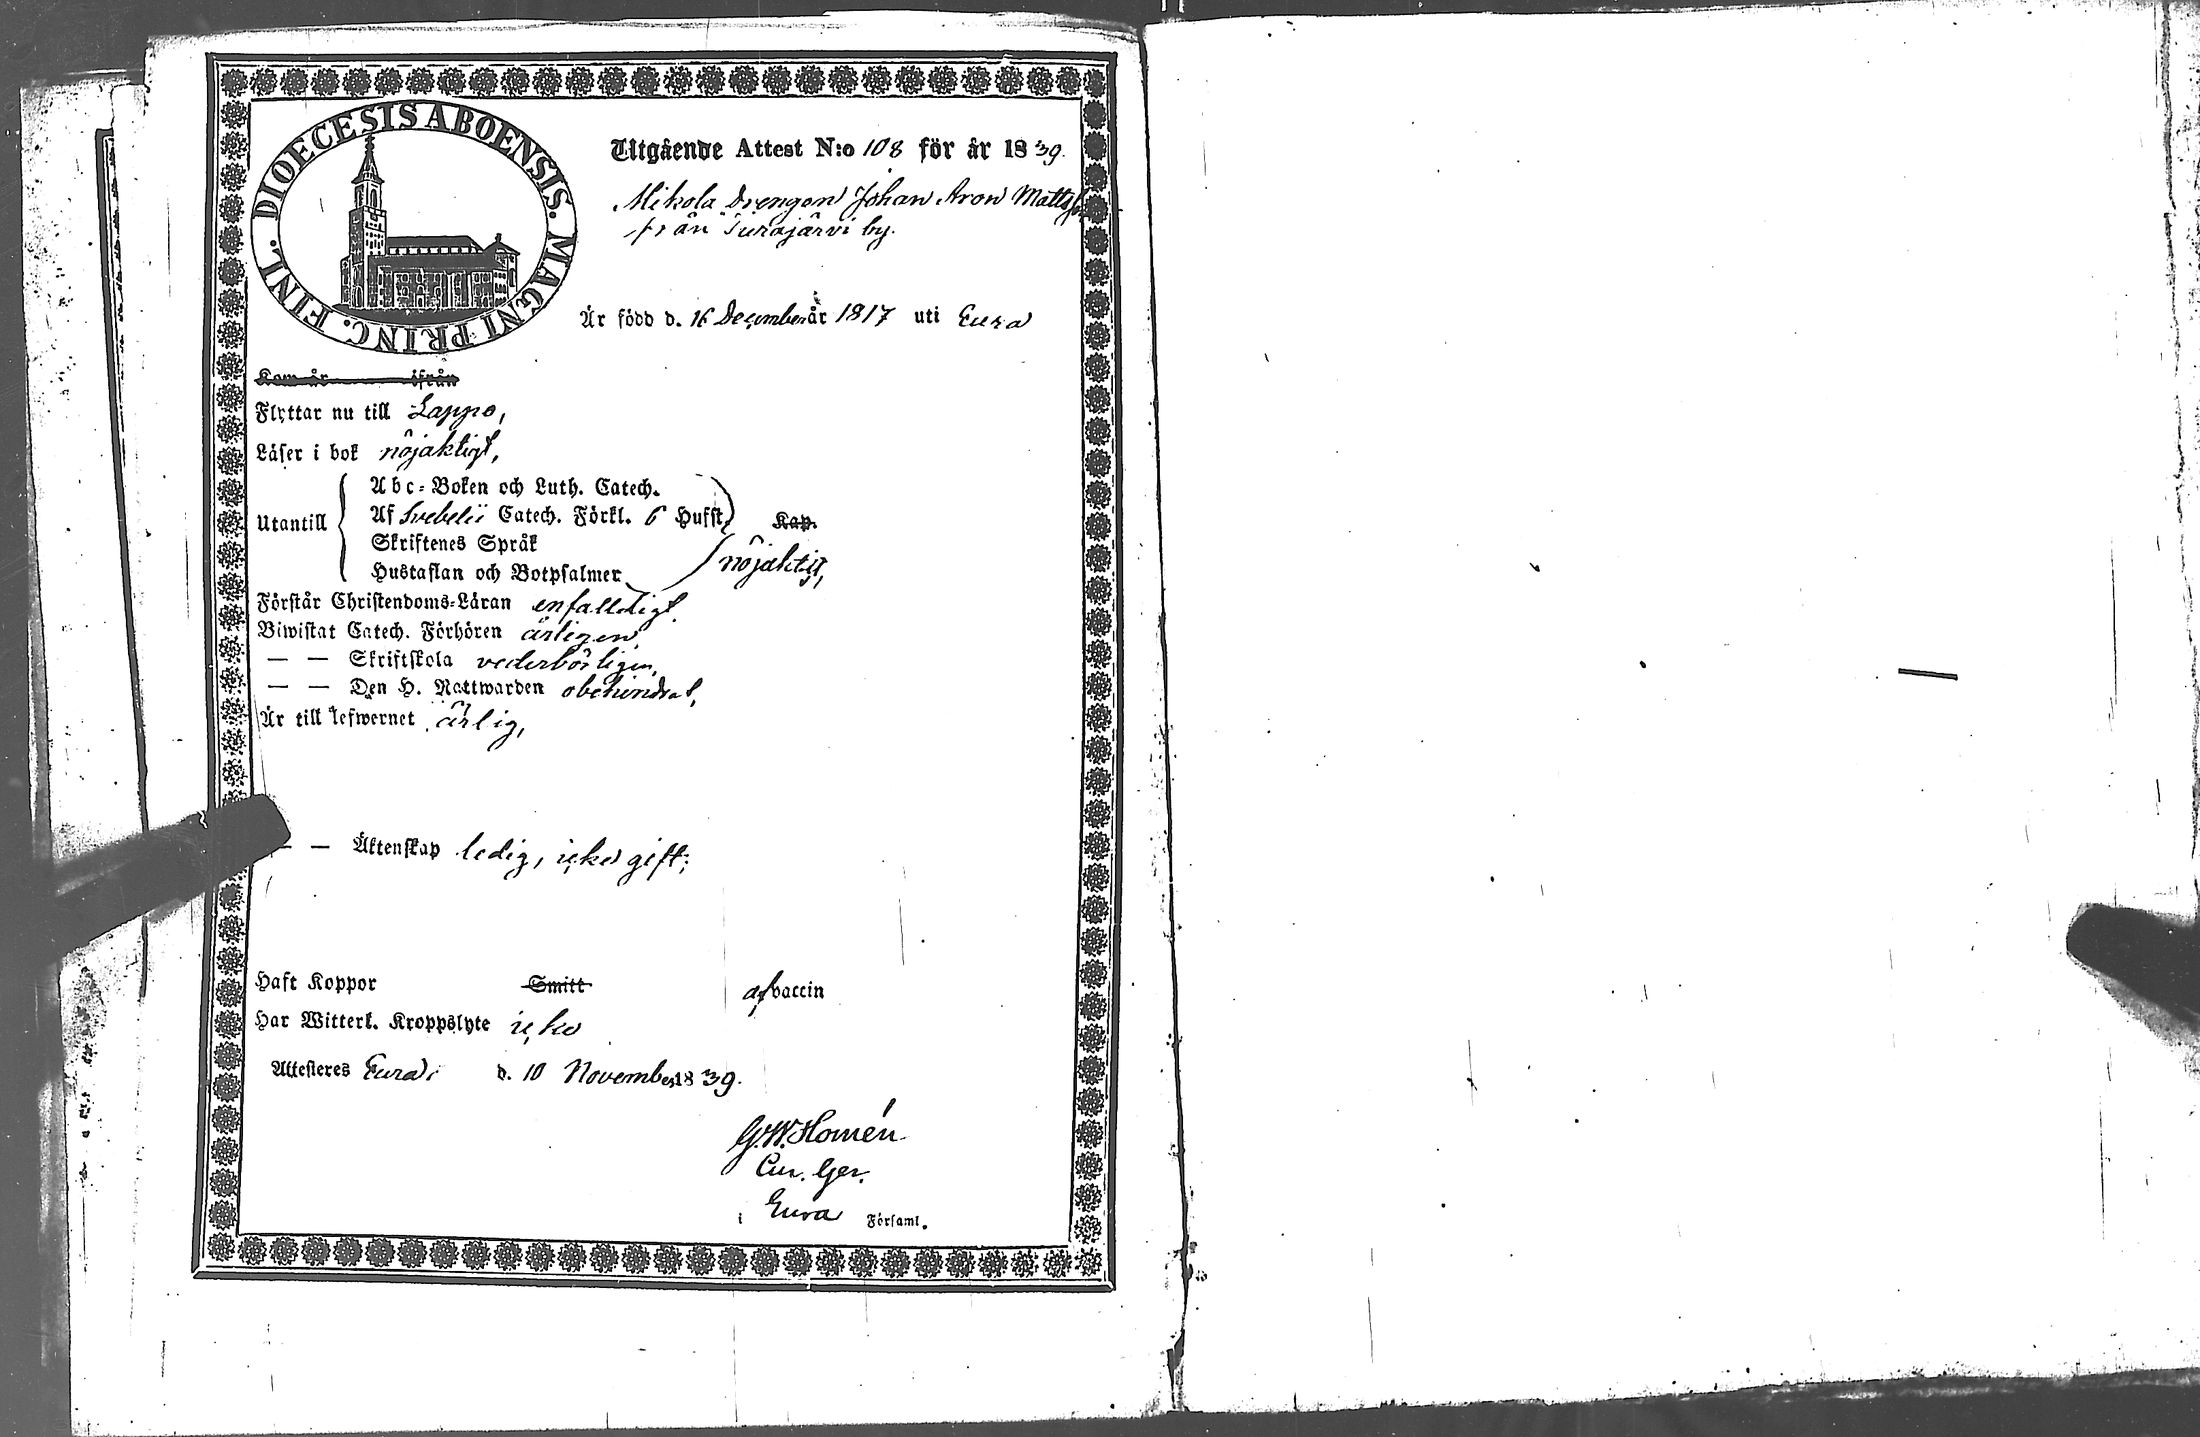 DIOECESIS ABOENSIS. MAGNI PRINC. FINL.
Utgående Attest N:o 108 för år 1839.
Mikola Drengen Johan Aron Mattsson
från Turajärvi by.
Är född d. 16 December år 1817 uti Eura
Kom år ifrån
Flyttar nu till Lappo,
Läser i bok nöjaktigt,
Abc-Boken och Luth. Catech.
Utantill
Af Svebelii Catech. Förkl. 6 Hufst. Kap.
Skriftenes Språk
nöjaktigt,
Hustaflan och Botpsalmer
Förstår Christendoms-Läran enfalldigt.
Biwistat Catech. Förhören årligen
— — Skriftskola vederbörligen,
— — Den H. Nattwarden obehindrat,
Är till lefwernet ärlig,
— — Äktenskap ledig, icke gift;
Haft Koppor Smitt af vaccin
Har Witterl. Kroppslyte icke
Attesteras Eura d. 10 November 1839.
G.W. Homén
Cur. Ger.
i Eura Församl.